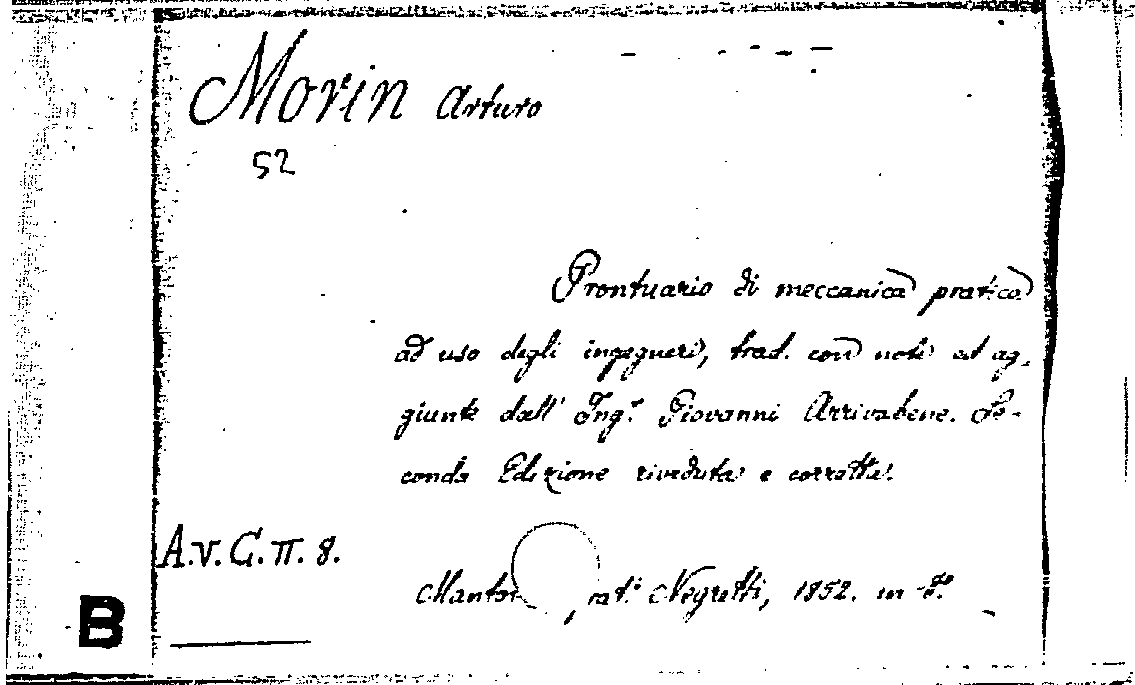 Morin Arturo
52
Prontuario di meccanica pratica
ad uso degli ingegneri, trad. con note ed ag-
giunte dall' Ing.r Giovanni Arrivabene. Se-
conda Edizione riveduta e corretta.
A.V.C.π.8.
frat.i Negretti, 1852. in 8.º
B